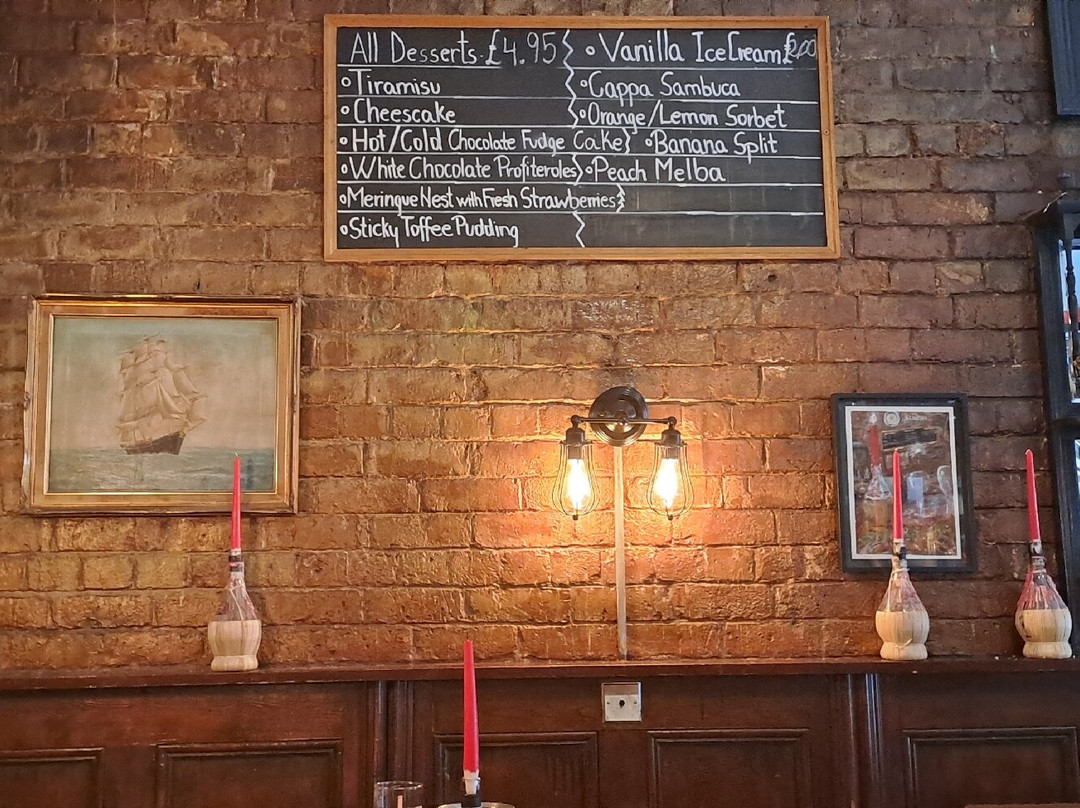 All Desserts-£4.95
○Tiramisu
○Cheescake
○Hot/Cold Chocolate Fudge Cake
○White Chocolate Profiteroles
○Meringue Nest with Fresh Strawberries
○Sticky Toffee Pudding
○Vanilla IceCream £2.00
○Cappa Sambuca
○Orange/Lemon Sorbet
○Banana Split
○Peach Melba